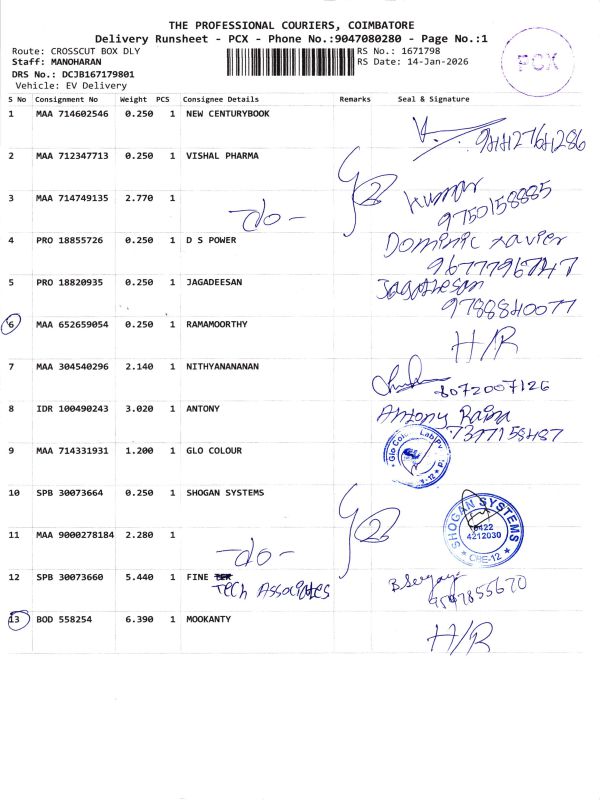 THE PROFESSIONAL COURIERS, COIMBATORE
Delivery Runsheet - PCX - Phone No.:9047080280 - Page No.:1
Route: CROSSCUT BOX DLY
Staff: MANOHARAN
DRS No.: DCJB167179801
Vehicle: EV Delivery
RS No.: 1671798
RS Date: 14-Jan-2026
PCX
S No Consignment No Weight PCS Consignee Details Remarks Seal & Signature
1 MAA 714602546 0.250 1 NEW CENTURYBOOK
2 MAA 712347713 0.250 1 VISHAL PHARMA
3 MAA 714749135 2.770 1 -do- Kumar
9750158885
4 PRO 18855726 0.250 1 D S POWER Dominic xavier
9677796747
5 PRO 18820935 0.250 1 JAGADEESAN Jagatheesan
9788840077
6 MAA 652659054 0.250 1 RAMAMOORTHY H/R
7 MAA 304540296 2.140 1 NITHYANANANAN 8072007126
8 IDR 100490243 3.020 1 ANTONY Antony
7397158487
9 MAA 714331931 1.200 1 GLO COLOUR Glo Lab
10 SPB 30073664 0.250 1 SHOGAN SYSTEMS SHOGAN SYSTEMS
0422
4212030
11 MAA 9000278184 2.280 1 -do-
12 SPB 30073660 5.440 1 FINE
Tech Associates
13 BOD 558254 6.390 1 MOOKANTY H/R